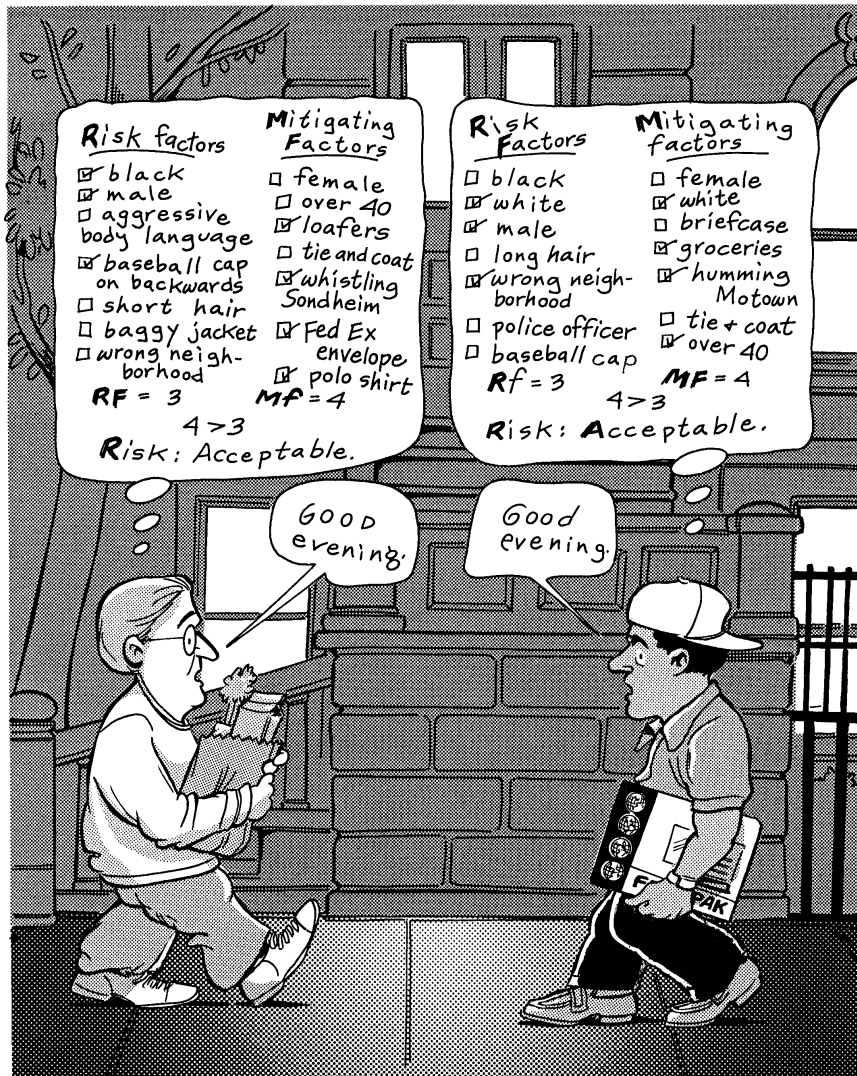 Risk factors
black
male
aggressive
body language
baseball cap
on backwards
short hair
baggy jacket
wrong neigh-
borhood
RF = 3
Mitigating
Factors
female
over 40
loafers
tie and coat
whistling
Sondheim
Fed Ex
envelope
polo shirt
Mf = 4
4 > 3
Risk: Acceptable.
Risk
Factors
black
white
male
long hair
wrong neigh-
borhood
police officer
baseball cap
Rf = 3
Mitigating
factors
female
white
briefcase
groceries
humming
Motown
tie + coat
over 40
MF = 4
4 > 3
Risk: Acceptable.
GOOD
evening.
Good
evening.
F
PAK